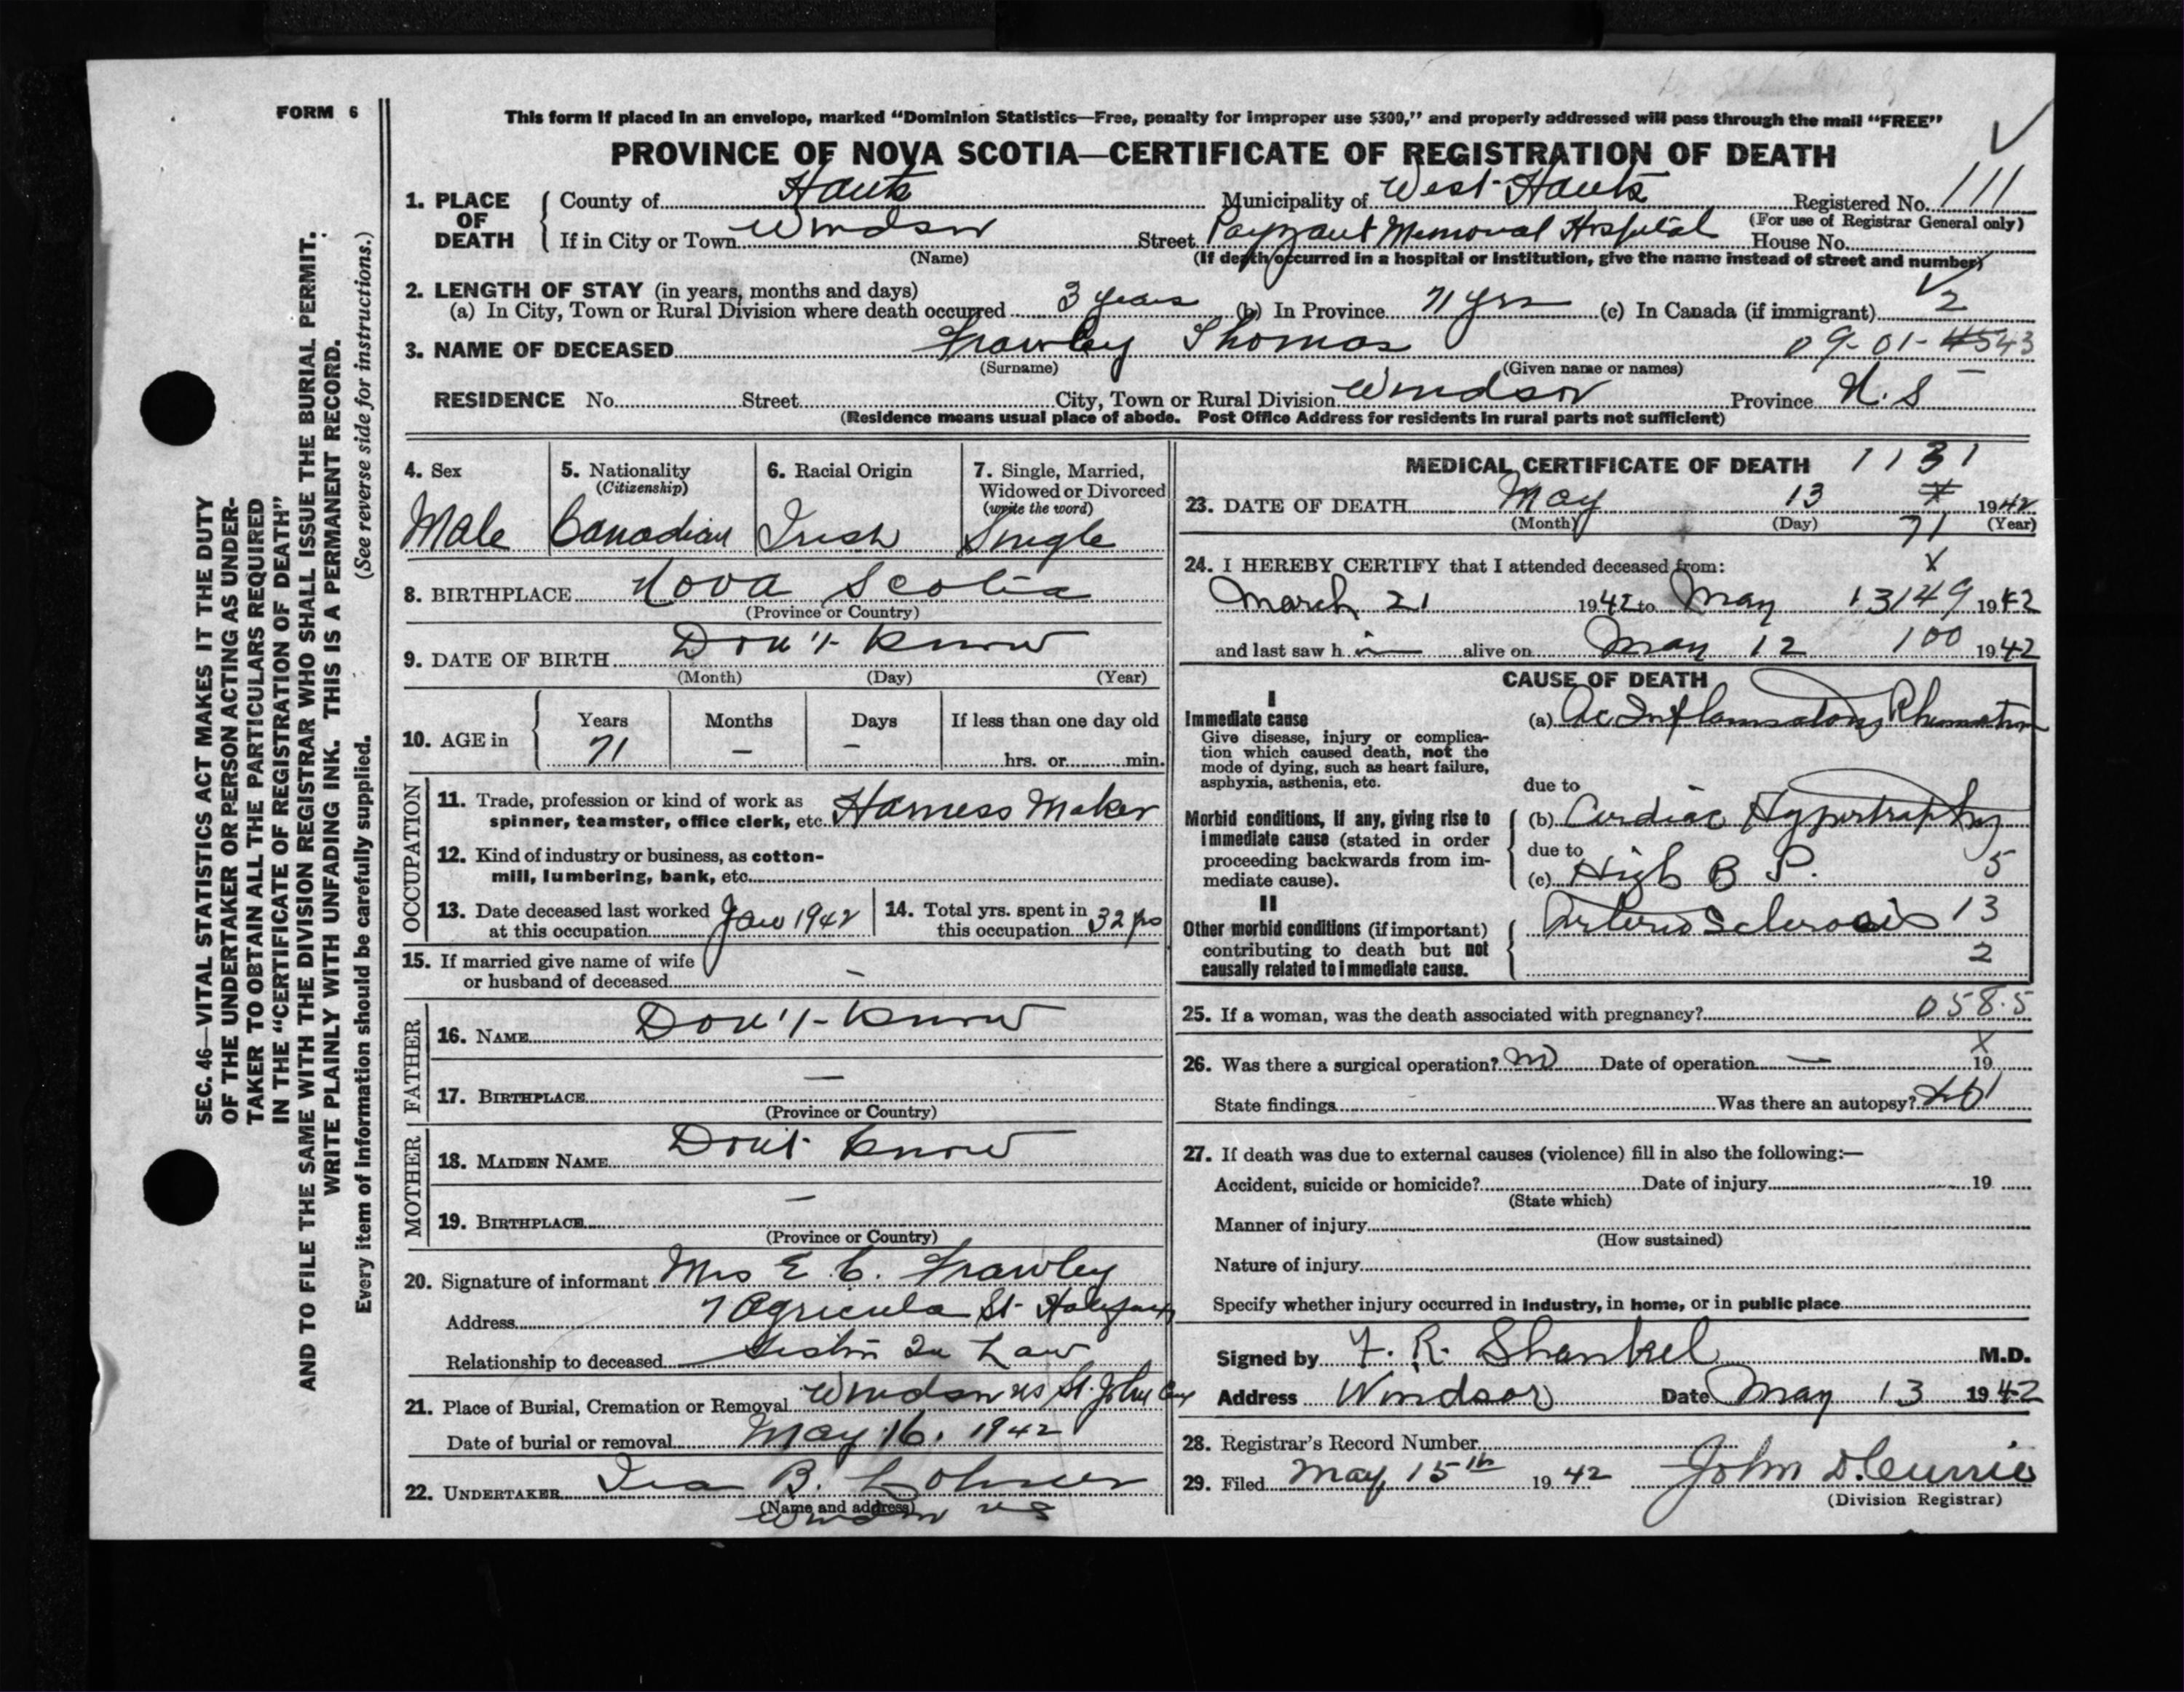 FORM 6
This form if placed in an envelope, marked "Dominion Statistics—Free, penalty for improper use $300," and properly addressed will pass through the mail "FREE"
PROVINCE OF NOVA SCOTIA—CERTIFICATE OF REGISTRATION OF DEATH
1. PLACE OF DEATH County of Hants Municipality of West Hants Registered No. 111
(For use of Registrar General only)
If in City or Town Windsor Street Payzant Memorial Hospital House No.
(Name) (If death occurred in a hospital or institution, give the name instead of street and number)
2. LENGTH OF STAY (in years, months and days)
(a) In City, Town or Rural Division where death occurred 3 years (b) In Province 71 yrs (c) In Canada (if immigrant) 2
3. NAME OF DECEASED Frawley Thomas 09-01-4543
(Surname) (Given name or names)
RESIDENCE No. Street City, Town or Rural Division Windsor Province N.S
(Residence means usual place of abode. Post Office Address for residents in rural parts not sufficient)
4. Sex 5. Nationality (Citizenship) 6. Racial Origin 7. Single, Married, Widowed or Divorced (write the word)
Male Canadian Irish Single
8. BIRTHPLACE Nova Scotia
(Province or Country)
9. DATE OF BIRTH Don't know
(Month) (Day) (Year)
10. AGE in Years Months Days If less than one day old
71 — — hrs. or min.
OCCUPATION
11. Trade, profession or kind of work as spinner, teamster, office clerk, etc. Harness Maker
12. Kind of industry or business, as cotton-mill, lumbering, bank, etc.
13. Date deceased last worked at this occupation Jan 1942 14. Total yrs. spent in this occupation 32 yrs
15. If married give name of wife or husband of deceased —
FATHER
16. NAME Don't know
17. BIRTHPLACE —
(Province or Country)
MOTHER
18. MAIDEN NAME Don't know
19. BIRTHPLACE —
(Province or Country)
20. Signature of informant Mrs E. C. Frawley
Address 7 Agricula St. Halifax
Relationship to deceased Sister In Law
21. Place of Burial, Cremation or Removal Windsor NS St. John Cem
Date of burial or removal May 16, 1942
22. UNDERTAKER Ira B. Lohnes
(Name and address)
Windsor NS
MEDICAL CERTIFICATE OF DEATH 1131
23. DATE OF DEATH May 13 1942
(Month) (Day) 71 (Year)
24. I HEREBY CERTIFY that I attended deceased from:
March 21 1942 to May 13 149 1942
and last saw h im alive on May 12 100 1942
CAUSE OF DEATH
I
Immediate cause (a) Ac Inflammatory Rheumatism
Give disease, injury or complication which caused death, not the mode of dying, such as heart failure, asphyxia, asthenia, etc.
due to
Morbid conditions, if any, giving rise to immediate cause (stated in order proceeding backwards from immediate cause).
(b) Cardiac Hypertrophy
due to
(c) High B P. 5
II
Other morbid conditions (if important) contributing to death but not causally related to immediate cause.
Arterio Sclerosis 13
2
25. If a woman, was the death associated with pregnancy? 058.5
26. Was there a surgical operation? no Date of operation — 19
State findings Was there an autopsy? no
27. If death was due to external causes (violence) fill in also the following:—
Accident, suicide or homicide? Date of injury 19
(State which)
Manner of injury
(How sustained)
Nature of injury
Specify whether injury occurred in industry, in home, or in public place
Signed by F. R. Shankel M.D.
Address Windsor Date May 13 1942
28. Registrar's Record Number
29. Filed May 15th 1942 John D. Currie
(Division Registrar)
SEC. 46—VITAL STATISTICS ACT MAKES IT THE DUTY
OF THE UNDERTAKER OR PERSON ACTING AS UNDER-
TAKER TO OBTAIN ALL THE PARTICULARS REQUIRED
IN THE "CERTIFICATE OF REGISTRATION OF DEATH"
AND TO FILE THE SAME WITH THE DIVISION REGISTRAR WHO SHALL ISSUE THE BURIAL PERMIT.
WRITE PLAINLY WITH UNFADING INK. THIS IS A PERMANENT RECORD.
Every item of information should be carefully supplied. (See reverse side for instructions.)